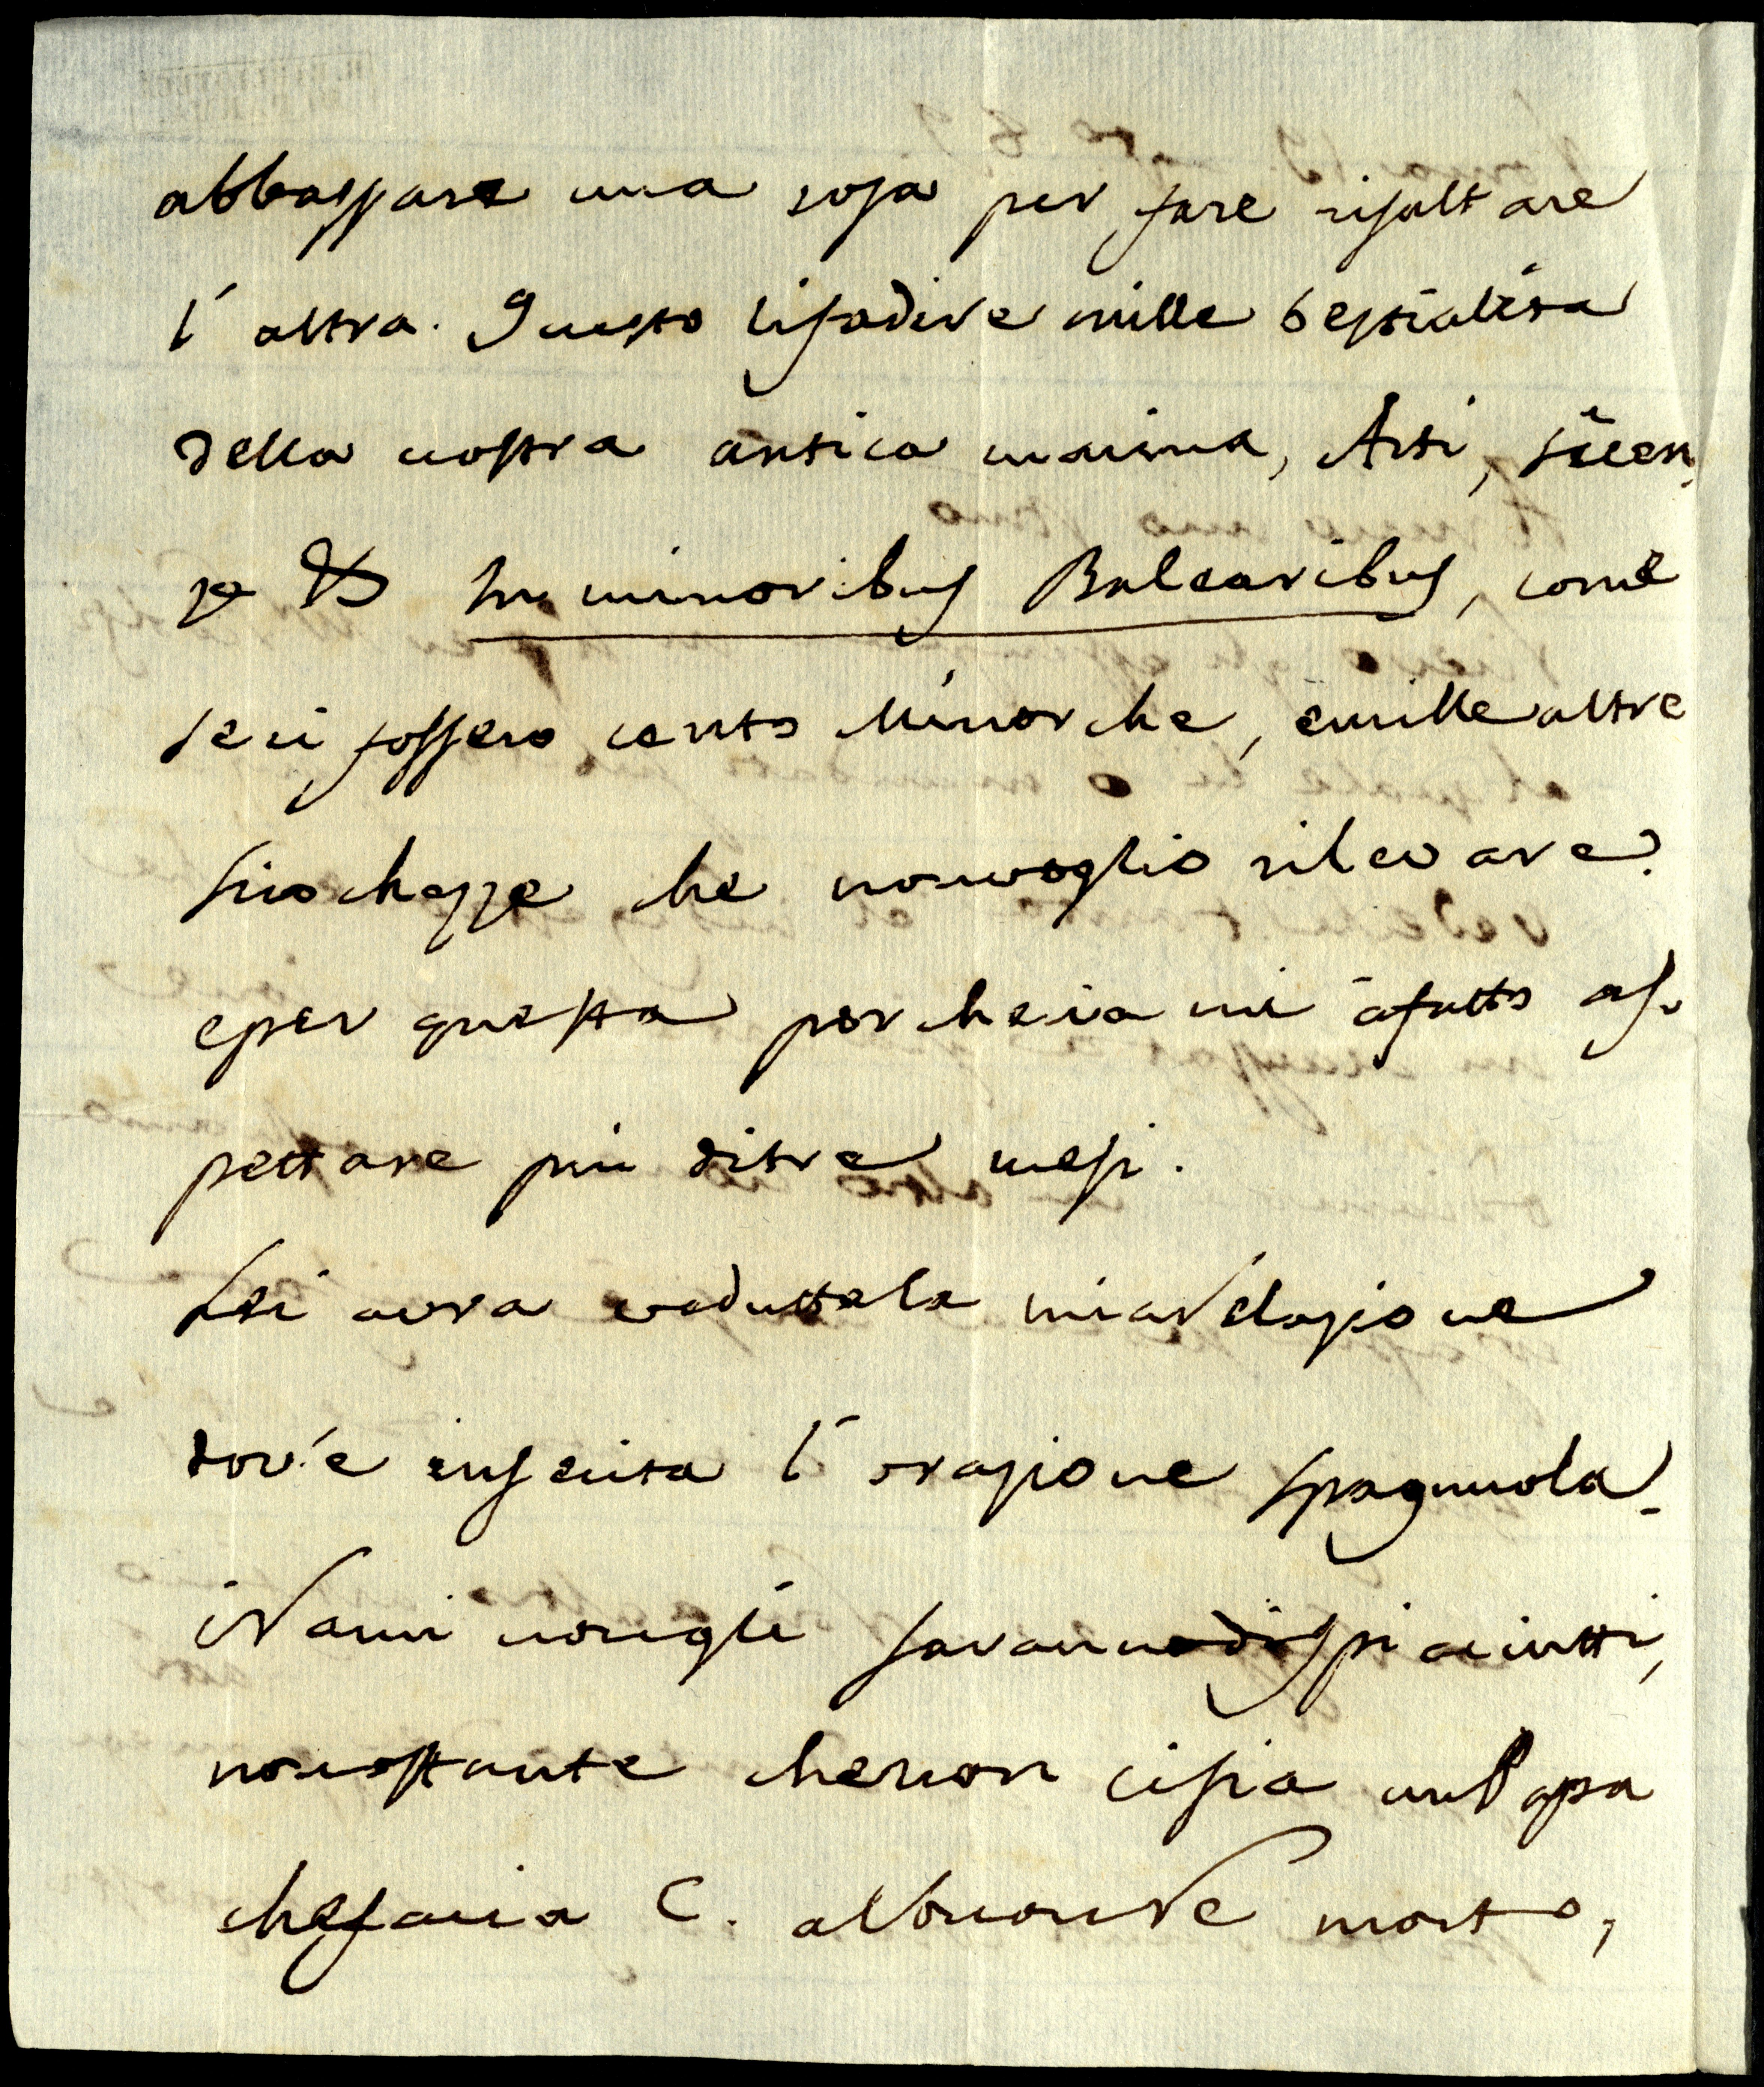 abbassare una cosa per fare risaltare
l'altra. Questo li fa dire mille bestialita
della nostra antica marina, Arti, scien
ze & In minoribus Balearibus, come
se ci fossero cento Minorche, e mille altre
sciochezze che non voglio rilevare.
e per questa porcheria mi à fatto as-
pettare piu di tre mesi.
Lei avra veduttala mia relazione
dov'è inserita l'orazione spagnuola.
I Rami non gli saranno dispiaciutti,
non ostante che non ci sia un Papa
che faccia C. al bonomo morto,